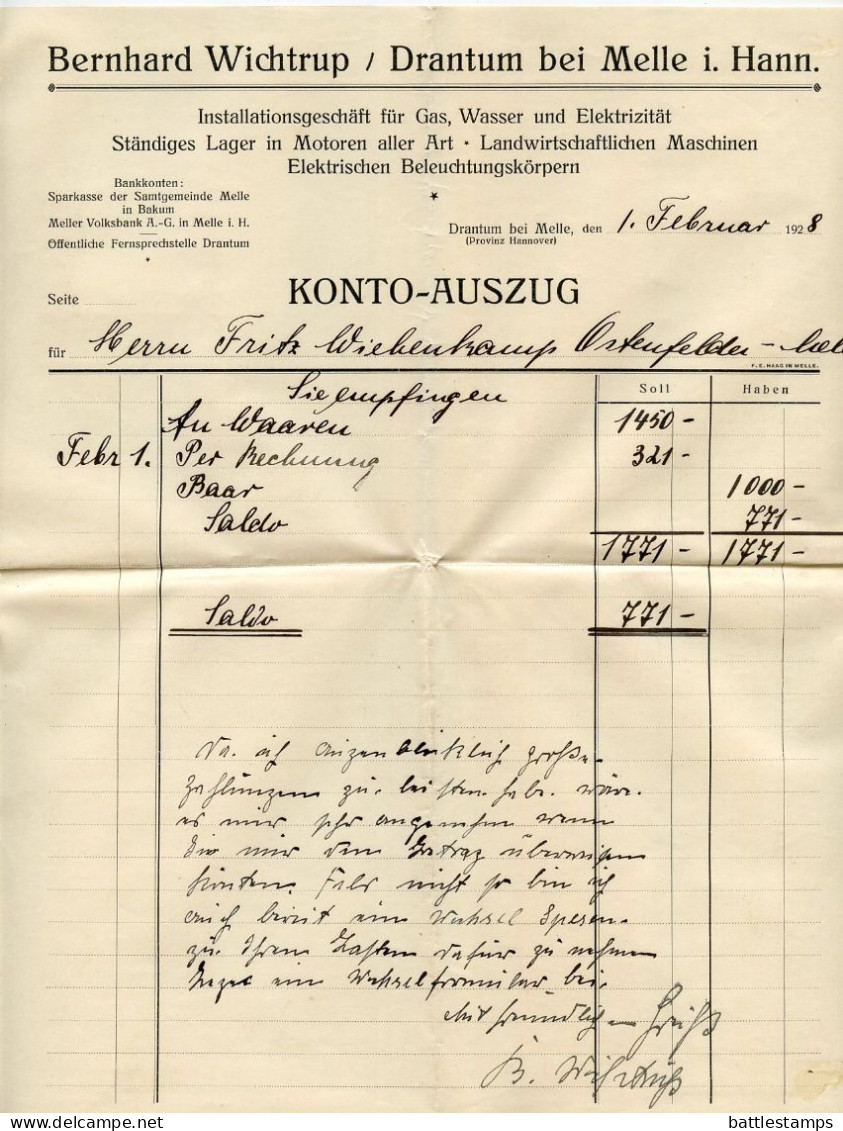 Bernhard Wichtrup / Drantum bei Melle i. Hann.
Installationsgeschäft für Gas, Wasser und Elektrizität
Ständiges Lager in Motoren aller Art · Landwirtschaftlichen Maschinen
Elektrischen Beleuchtungskörpern
Bankkonten:
Sparkasse der Samtgemeinde Melle
in Bakum
Meller Volksbank A.-G. in Melle i. H.
Öffentliche Fernsprechstelle Drantum
Drantum bei Melle, den 1. Februar 1928
(Provinz Hannover)
Seite
KONTO-AUSZUG
für Herrn Fritz Wiebenkamp Ostenfelde –
F. E. HAAG IN MELLE.
Soll Haben
Sie empfingen
An Waaren 1450 –
Febr 1. Per Rechnung 321 –
Baar 1000 –
Saldo 771 –
1771 – 1771 –
Saldo 771 –
Da ich augenbliklich große
Zahlungen zu leisten habe. wäre
es mir sehr angenehm wenn
Sie mir den Betrag überweisen
könten. Fals nicht so bin ich
auch bereit ein Wechsel Spesen
zu Ihren Lasten dafür zu nehmen
ein Wechselformular bei.
Mit freundlichen Gruß
B. Wichtrup
battlestamps